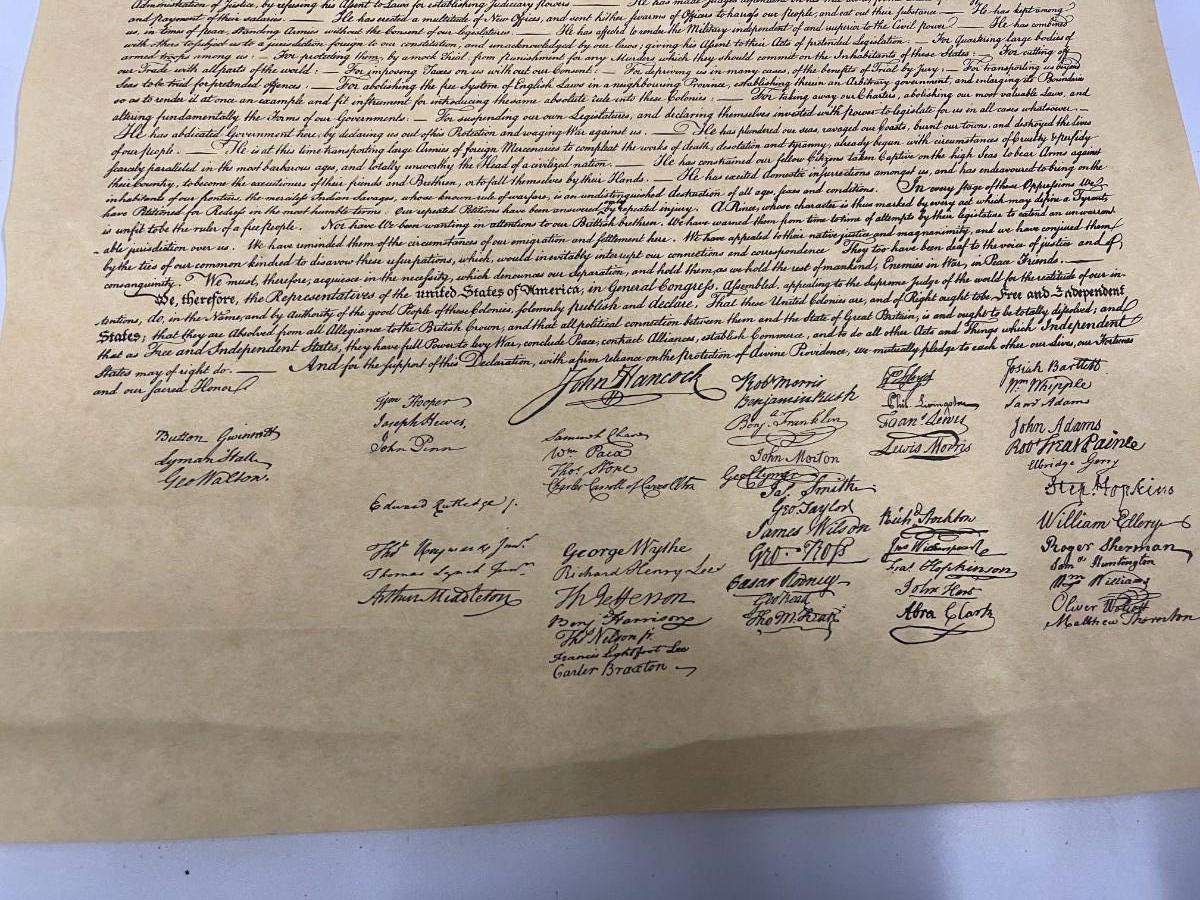 Administration of Justice, by refusing his Assent to Laws for establishing Judiciary powers. — He has made Judges dependent on his
and payment of their salaries. — He has erected a multitude of New Offices, and sent hither swarms of Officers to harass our people, and eat out their substance. — He has kept among
us, in times of peace, Standing Armies without the Consent of our legislatures. — He has affected to render the Military independent of and superior to the Civil power. — He has combined
with others to subject us to a jurisdiction foreign to our constitution, and unacknowledged by our laws; giving his Assent to their Acts of pretended Legislation: — For Quartering large bodies of
armed troops among us: — For protecting them, by a mock Trial, from punishment for any Murders which they should commit on the Inhabitants of these States: — For cutting off
our Trade with all parts of the world: — For imposing Taxes on us without our Consent: — For depriving us in many cases, of the benefits of Trial by Jury: — For transporting us beyond
Seas to be tried for pretended offences: — For abolishing the free System of English Laws in a neighbouring Province, establishing therein an Arbitrary government, and enlarging its Boundaries
so as to render it at once an example and fit instrument for introducing the same absolute rule into these Colonies: — For taking away our Charters, abolishing our most valuable Laws, and
altering fundamentally the Forms of our Governments: — For suspending our own Legislatures, and declaring themselves invested with power to legislate for us in all cases whatsoever. —
He has abdicated Government here, by declaring us out of his Protection and waging War against us. — He has plundered our seas, ravaged our Coasts, burnt our towns, and destroyed the lives
of our people. — He is at this time transporting large Armies of foreign Mercenaries to compleat the works of death, desolation and tyranny, already begun with circumstances of Cruelty & perfidy
scarcely paralleled in the most barbarous ages, and totally unworthy the Head of a civilized nation. — He has constrained our fellow Citizens taken Captive on the high Seas to bear Arms against
their Country, to become the executioners of their friends and Brethren, or to fall themselves by their Hands. — He has excited domestic insurrections amongst us, and has endeavoured to bring on the
inhabitants of our frontiers, the merciless Indian Savages, whose known rule of warfare, is an undistinguished destruction of all ages, sexes and conditions. In every stage of these Oppressions We
have Petitioned for Redress in the most humble terms: Our repeated Petitions have been answered only by repeated injury. A Prince, whose character is thus marked by every act which may define a Tyrant,
is unfit to be the ruler of a free people. Nor have We been wanting in attentions to our Brittish brethren. We have warned them from time to time of attempts by their legislature to extend an unwarrant-
-able jurisdiction over us. We have reminded them of the circumstances of our emigration and settlement here. We have appealed to their native justice and magnanimity, and we have conjured them
by the ties of our common kindred to disavow these usurpations, which, would inevitably interrupt our connections and correspondence They too have been deaf to the voice of justice and of
consanguinity. We must, therefore, acquiesce in the necessity, which denounces our Separation, and hold them, as we hold the rest of mankind, Enemies in War, in Peace Friends. —
We, therefore, the Representatives of the united States of America, in General Congress, Assembled, appealing to the supreme Judge of the world for the rectitude of our in-
tentions, do, in the Name, and by Authority of the good People of these Colonies, solemnly publish and declare, That these United Colonies are, and of Right ought to be Free and Independent
States; that they are Absolved from all Allegiance to the British Crown, and that all political connection between them and the State of Great Britain, is and ought to be totally dissolved; and
that as Free and Independent States, they have full Power to levy War, conclude Peace, contract Alliances, establish Commerce, and to do all other Acts and Things which Independent
States may of right do. — And for the support of this Declaration, with a firm reliance on the protection of divine Providence, we mutually pledge to each other our Lives, our Fortunes
and our sacred Honor
Button Gwinnett
Lyman Hall
Geo Walton.
Wm Hooper
Joseph Hewes,
John Penn
Edward Rutledge /.
Thos Heyward Junr.
Thomas Lynch Junr.
Arthur Middleton
John Hancock
Samuel Chase
Wm Paca
Thos Stone
Charles Carroll of Carrollton
George Wythe
Richard Henry Lee
Th Jefferson
Benj Harrison
Thos Nelson jr.
Francis Lightfoot Lee
Carter Braxton
Robt Morris
Benjamin Rush
Benja Franklin
John Morton
Geo Clymer
Jas Smith
Geo. Taylor
James Wilson
Geo. Ross
Caesar Rodney
Geo Read
Tho M:Kean
Wm Floyd
Phil. Livingston
Frans. Lewis
Lewis Morris
Richd Stockton
Jno Witherspoon
Fras Hopkinson
John Hart
Abra Clark
Josiah Bartlett
Wm Whipple
Saml Adams
John Adams
Robt Treat Paine
Elbridge Gerry
Step. Hopkins
William Ellery
Roger Sherman
Saml Huntington
Wm Williams
Oliver Wolcott
Matthew Thornton